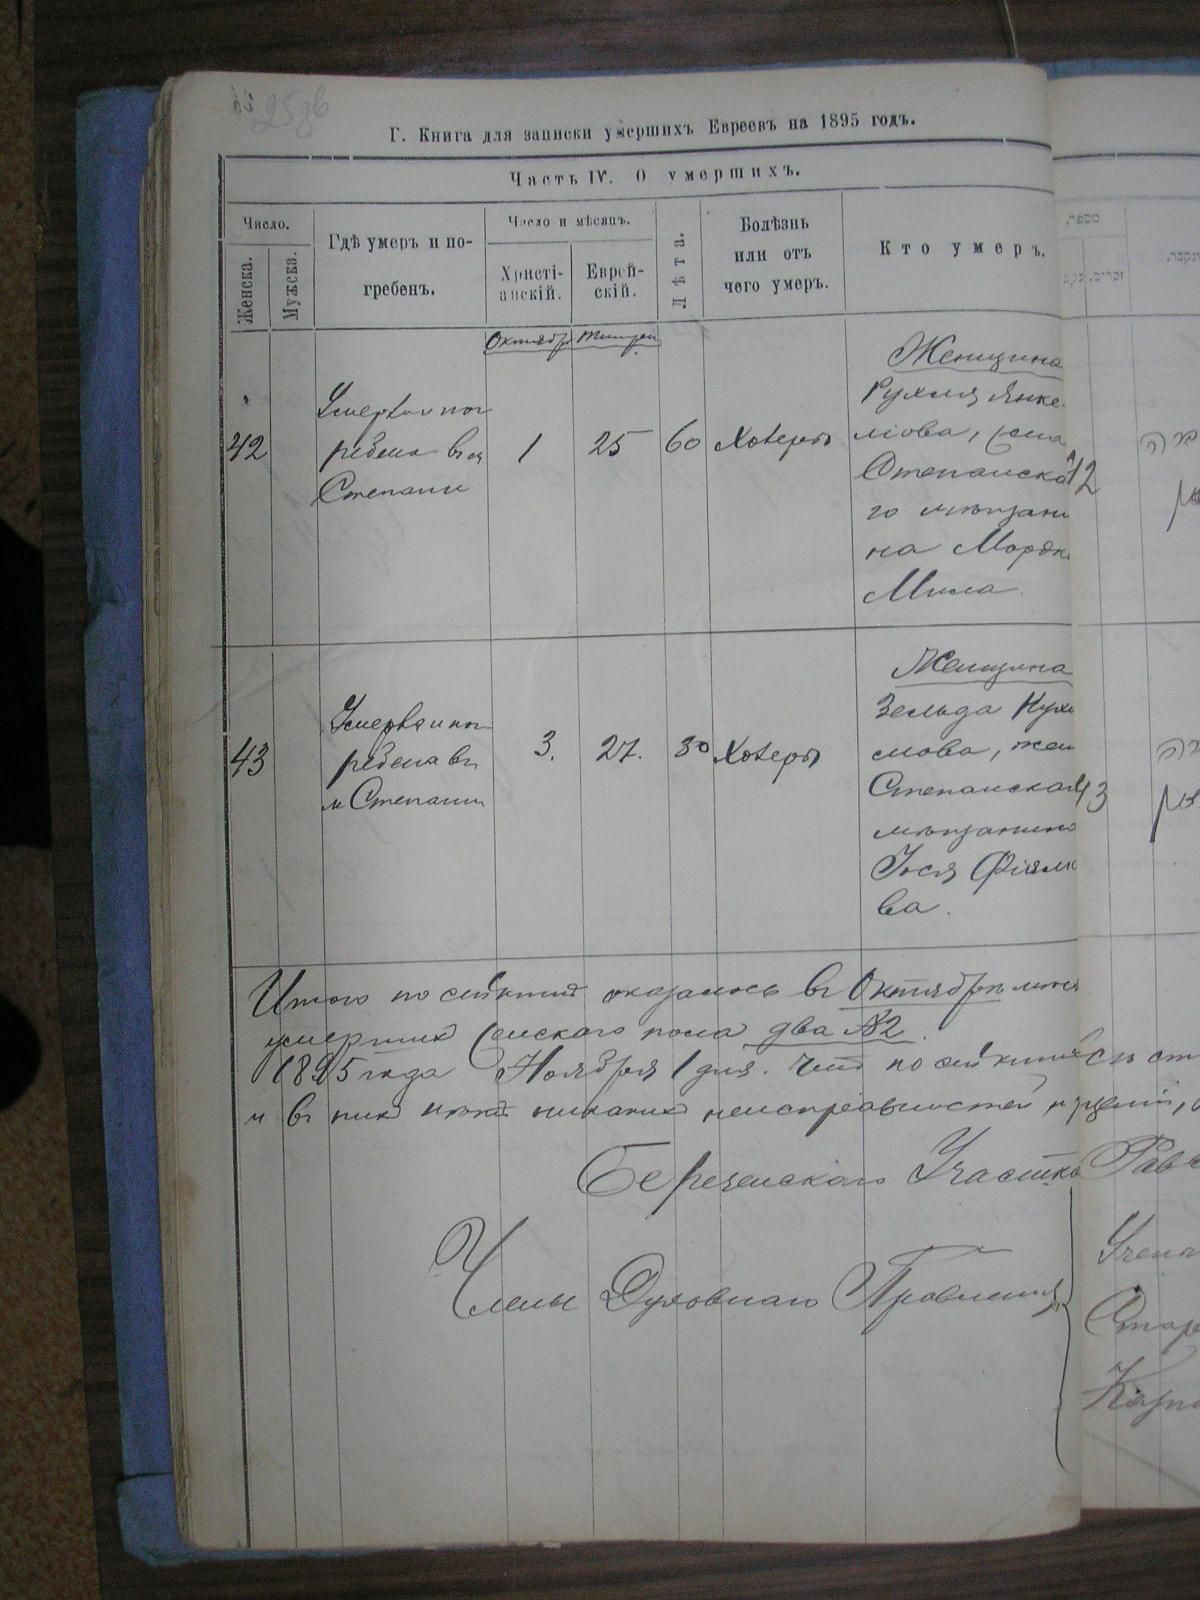 25зв
Г. Книга для записки умершихъ Евреевъ на 1895 годъ.
Часть IV. О умершихъ.
Число.
Женска.
Мужска.
Гдѣ умеръ и по-
гребенъ.
Число и мѣсяцъ.
Христі-
анскій.
Еврей-
скій.
Лѣта.
Болѣзнь
или отъ
чего умеръ.
Кто умеръ.
Октябр Тишреи
42
Умерла и пог
ребена въ м
Степани
1
25
60
Холеры
Женщина
Рухля Янке-
лѣова, жена
Степанска
го мѣщани
на Мордк
Мила.
43
Умерла и по
ребена въ
м Степани
3.
27.
30
Холеры
Женщина
Зельда
мова, жен
Степанскаг
мѣщанино
Іося
ва.
42
43
Итого по оказалось въ Октябрѣ мѣся
умерших женскаго пола два №2.
1895 года Ноября 1 дня. Что по
и въ них никаких неисправностей
Береженскаго Участка Равв
Члены Духовнаго Правления
Учена
Старо
Казна